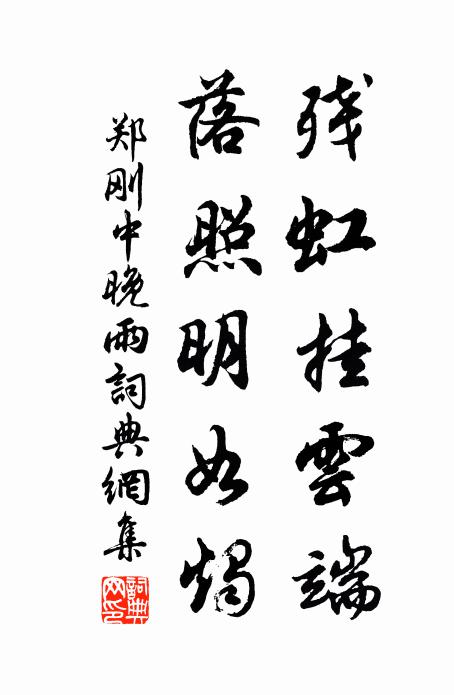 残虹挂雲端
落照明如燭
郑刚中晚雨詞典網集
詞典网印